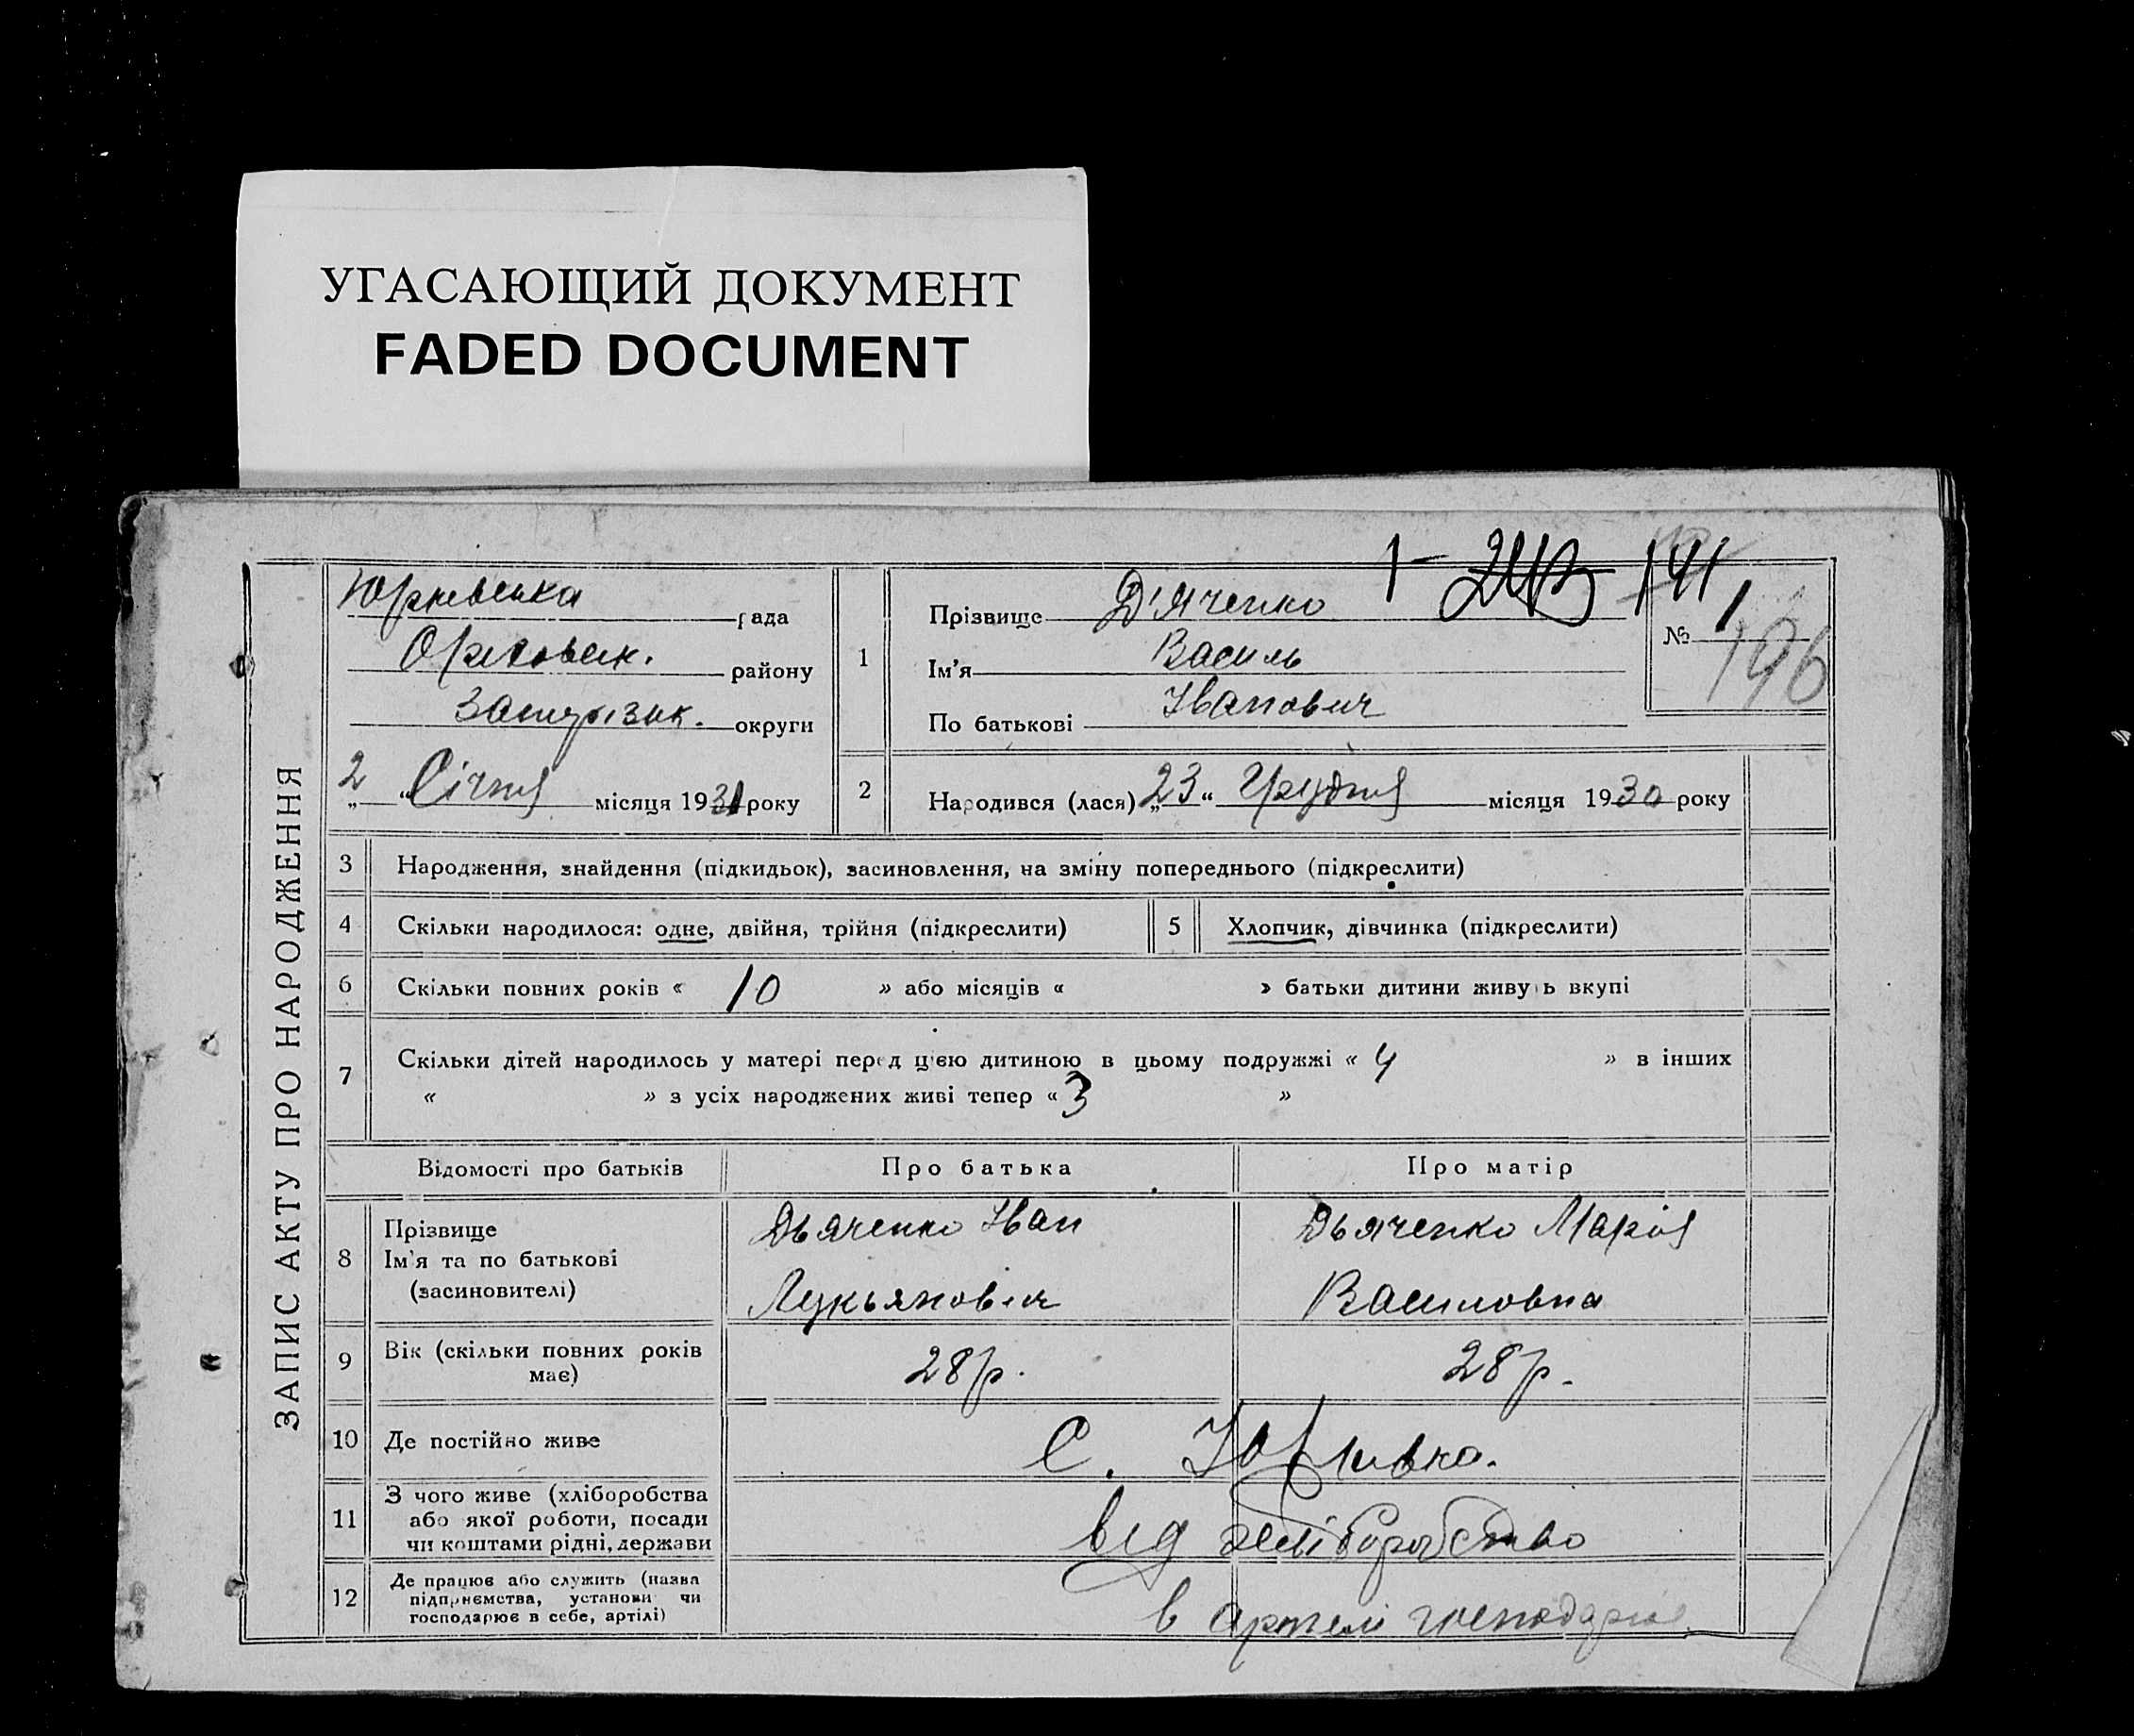 УГАСАЮЩИЙ ДОКУМЕНТ
FADED DOCUMENT
ЗАПИС АКТУ ПРО НАРОДЖЕННЯ
Юрківська рада
Оріховськ. району
Запорізьк. округи
„2“ Січня місяця 1931 року
1
Прізвище Д'яченко
Ім'я Василь
По батькові Іванович
1 - 141
№ 1
196
2
Народився (лася) „23“ Грудня місяця 1930 року
3 Народження, знайдення (підкидьок), засиновлення, на зміну попереднього (підкреслити)
4 Скільки народилося: одне, двійня, трійня (підкреслити)
5 Хлопчик, дівчинка (підкреслити)
6 Скільки повних років « 10 » або місяців « » батьки дитини живуть вкупі
7 Скільки дітей народилось у матері перед цією дитиною в цьому подружжі « 4 » в інших
« » з усіх народжених живі тепер « 3 »
Відомості про батьків
Про батька
Про матір
8
Прізвище
Ім'я та по батькові
(засиновителі)
Дьяченко Іван
Лукьяновіч
Дьяченко Марія
Василовна
9
Вік (скільки повних років
має)
28 р.
28 р.
10 Де постійно живе
С. Юрківка.
11
З чого живе (хліборобства
або якої роботи, посади
чи коштами рідні, держави
від хліборобство
12
Де працює або служить (назва
підприємства, установи чи
господарює в себе, артілі)
в артелі господарює